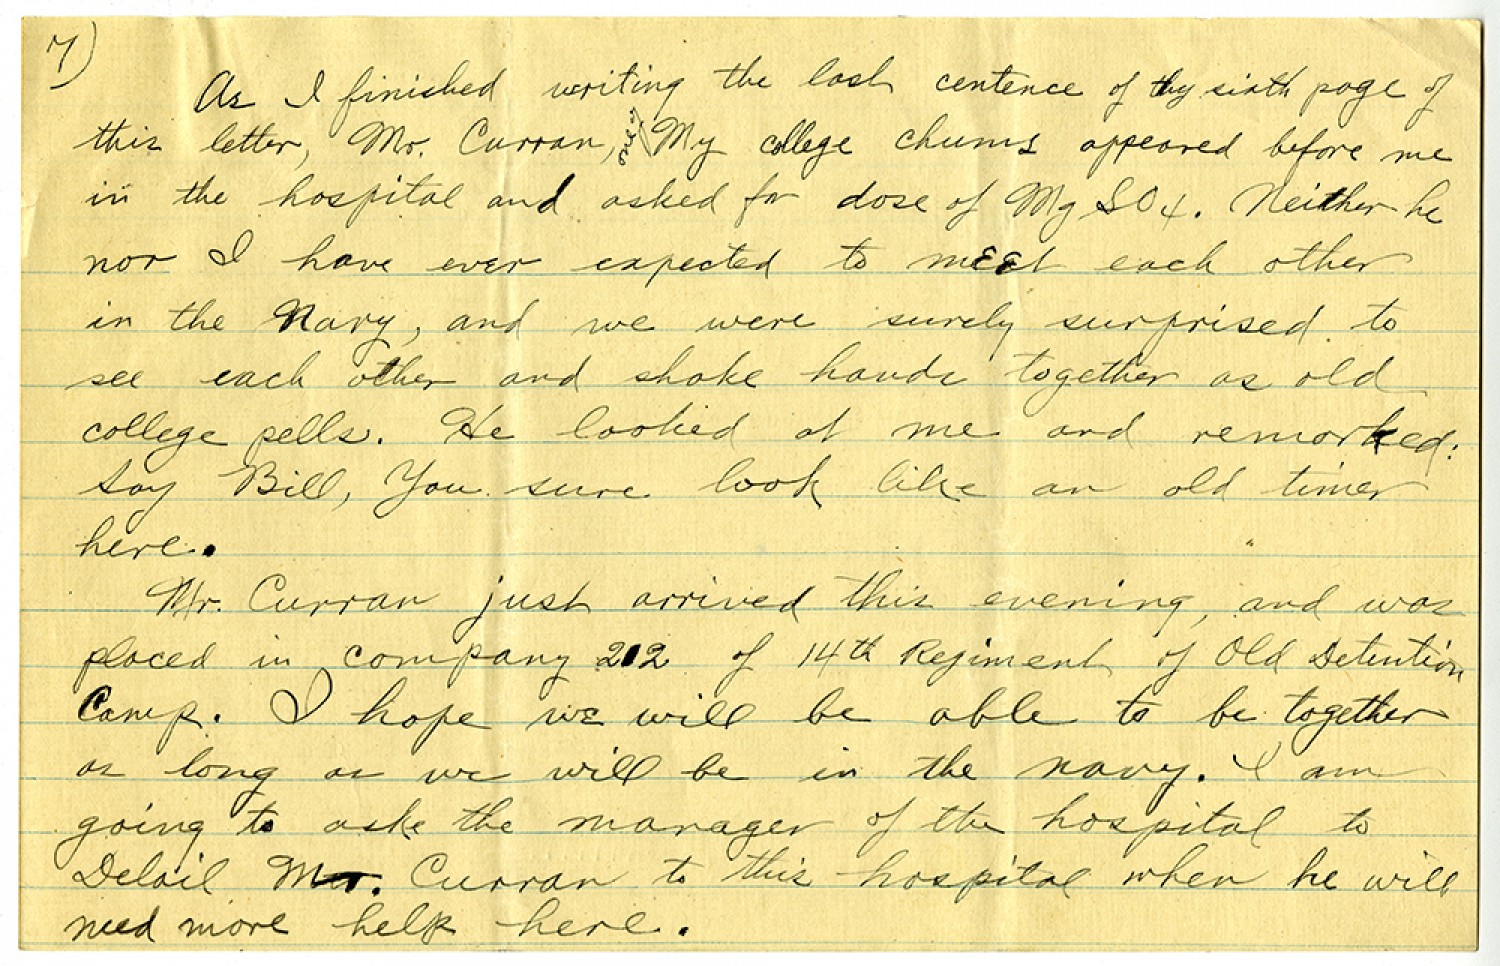 7)
As I finished writing the last centence of thy sixth page of
this letter, Mr. Curran, one of My college chums appeared before me
in the hospital and asked for dose of Mg SO4. Neither he
nor I have ever expected to meet each other
in the Navy, and we were surely surprised to
see each other and shake hands together as old
college pells. He looked at me and remarked:
Say Bill, You sure look like an old timer
here.
Mr. Curran just arrived this evening, and was
placed in company 212 of 14th Regiment of Old Detention
Camp. I hope we will be able to be together
as long as we will be in the navy. I am
going to aske the manager of the hospital to
Detail Mr. Curran to this hospital when he will
need more help here.